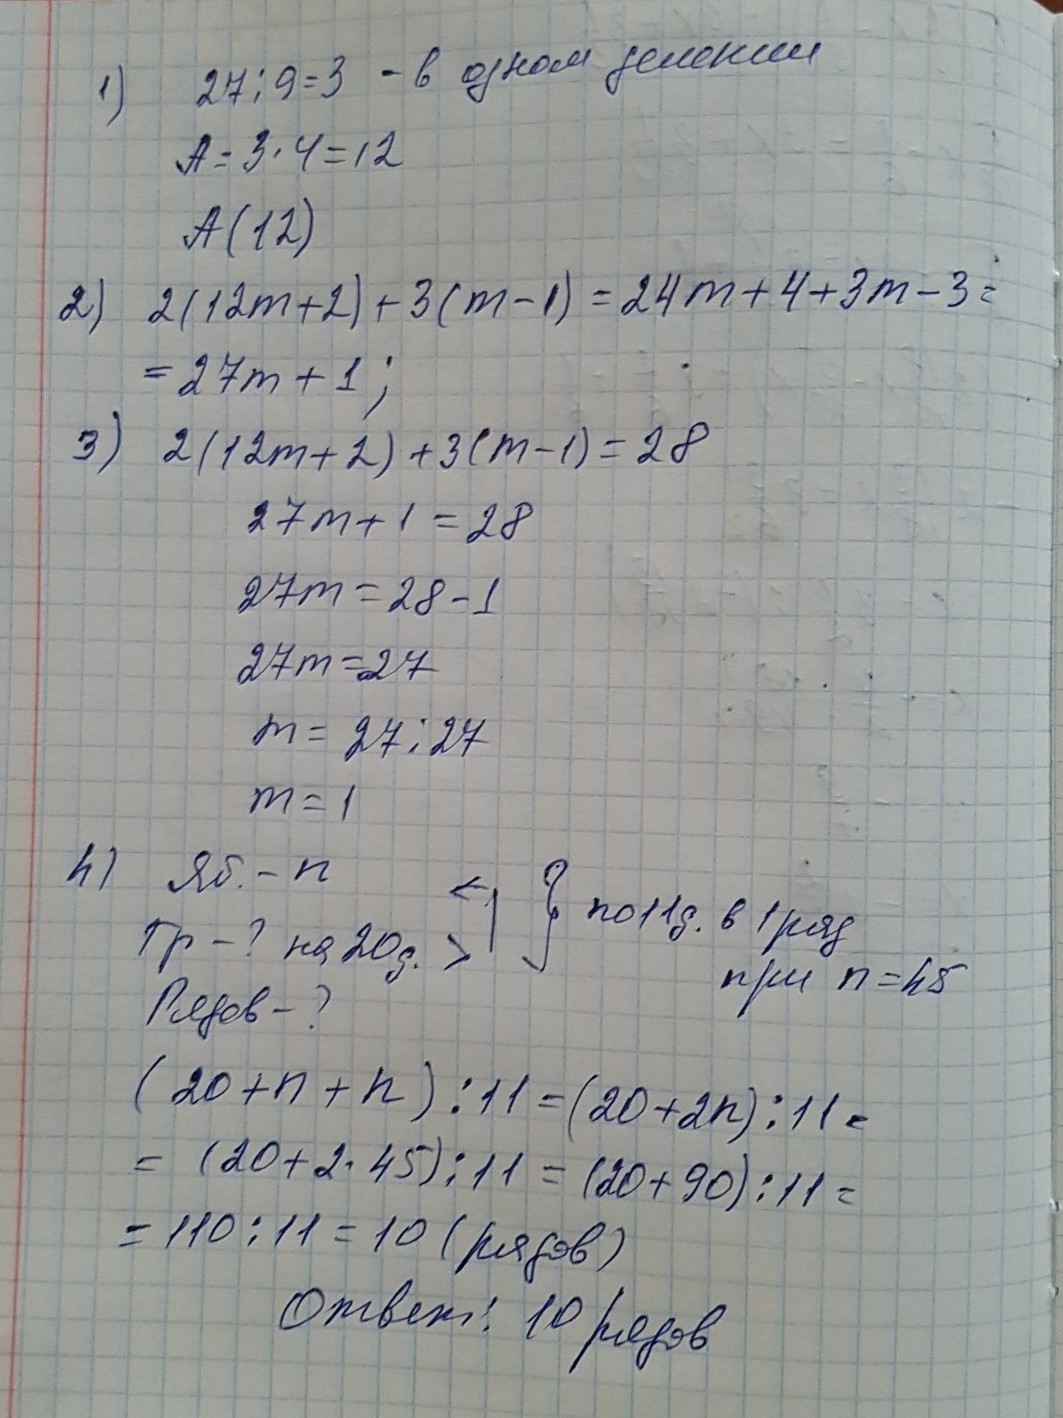 1) 27:9=3 - в одном делении
А=3·4=12
А(12)
2) 2(12m+2)+3(m-1)=24m+4+3m-3=
=27m+1;
3) 2(12m+2)+3(m-1)=28
27m+1=28
27m=28-1
27m=27
m=27:27
m=1
4) Яб.-n
Гр-? на 20д. > } по 11д. в 1 ряд
при n=45
Рядов-?
(20+n+n):11=(20+2n):11=
=(20+2·45):11=(20+90):11=
=110:11=10 (рядов)
Ответ: 10 рядов